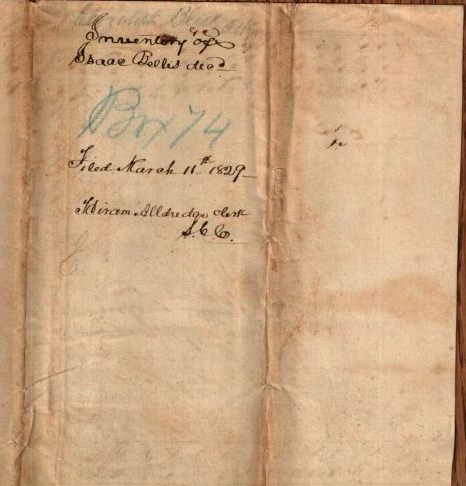 Inventory &c of
Isaac Bellis decd
Box 74
Filed March 11th 1829
Hiram Alldredge Clerk
S.C.C.